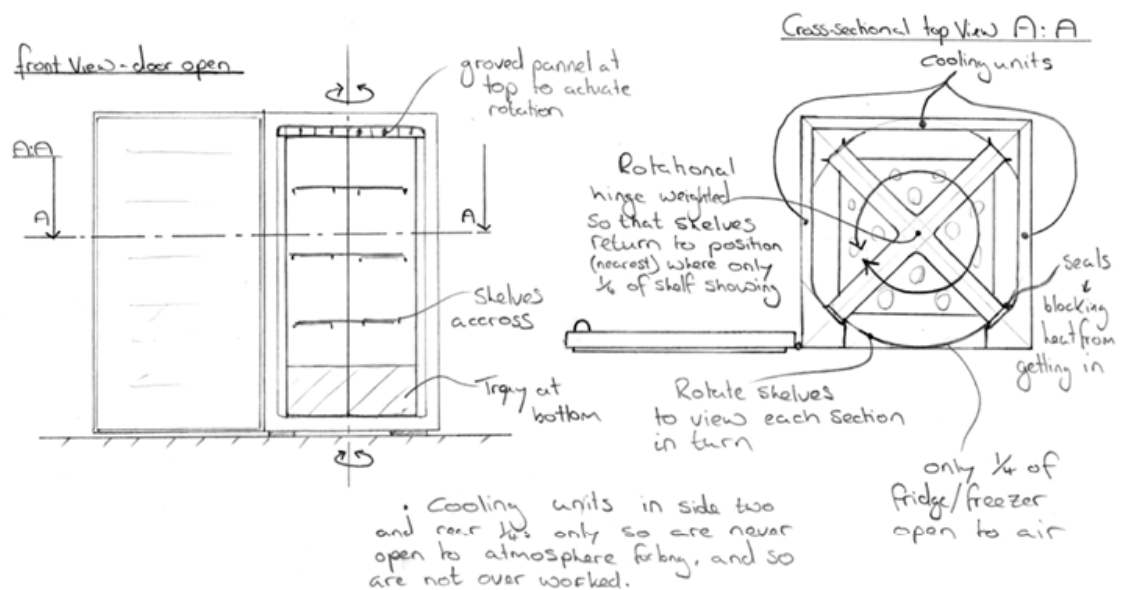 front View-door open
groved pannel at
top to actuate
rotation
A:A
A
A
shelves
accross
Tray at
bottom
Cross-sectional top View A:A
cooling units
Rotational
hinge weighted
so that shelves
return to position
(nearest) where only
¼ of shelf showing
seals
&
blocking
heat from
getting in
Rotate shelves
to view each section
in turn
only ¼ of
fridge/freezer
open to air
• Cooling units in side two
and rear ¼s only so are never
open to atmosphere for long, and so
are not over worked.